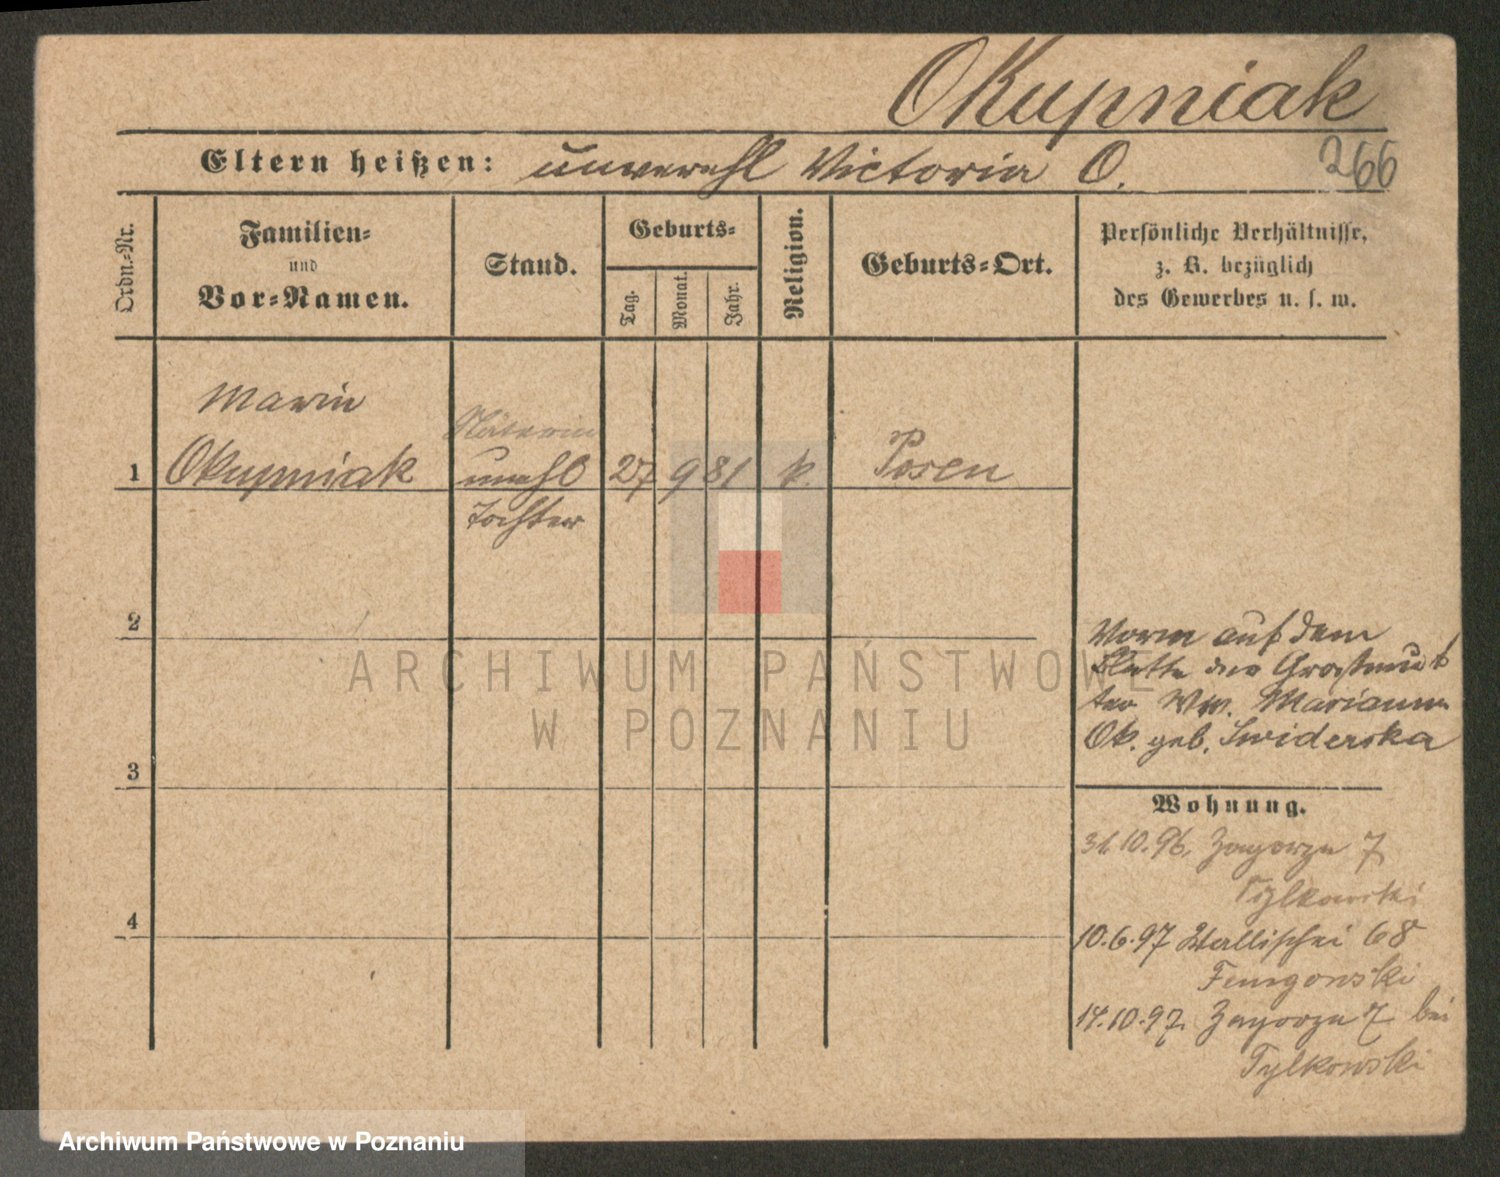 Okupniak
266
Eltern heißen: unverehl Victoria O.
Ordn.-Nr.
Familien-
und
Vor-Namen.
Stand.
Geburts-
Tag.
Monat.
Jahr.
Religion.
Geburts-Ort.
Persönliche Verhältnisse,
z. B. bezüglich
des Gewerbes u. s. w.
Marie
Näterin
1 Okupniak unehl 27 9 81 k. Posen
Tochter
2
Vorm auf dem
Blatte der Großmut
ter Ww. Marianna
Ok. geb. Swiderska
3
Wohnung.
31.10.96. Zagorze 7
Tylkowski
4
10.6.97 Wallischei 68
14.10.97. Zagorze 7 bei
Tylkowski
ARCHIWUM PAŃSTWOWE
W POZNANIU
Archiwum Państwowe w Poznaniu